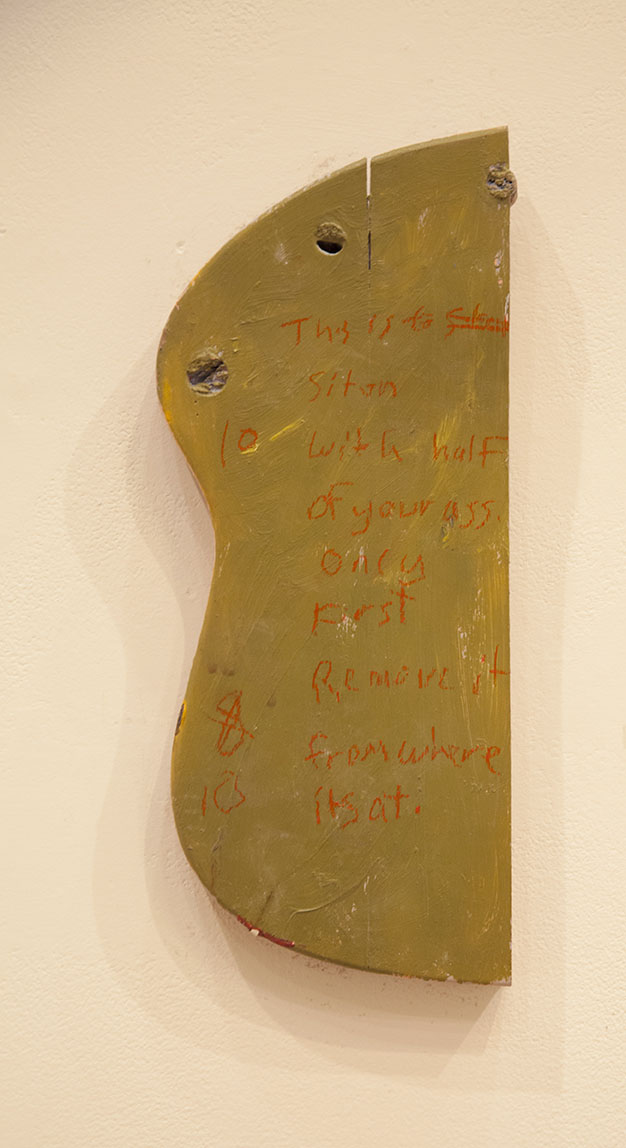 This is to
sit on
10 with half
of your ass.
only
First
Remove it
8
from where
10 its at.